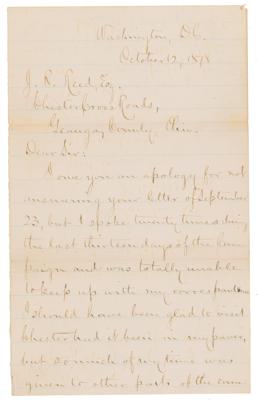 Washington, D.C.
October 12, 1878
J. R. Reed, Esq.
Chester Cross Roads,
Geauga County, Ohio.
Dear Sir:
I owe you an apology for not
answering your letter of September
23, but I spoke twenty times during
the last thirteen days of the cam-
paign and was totally unable
to keep up with my correspondence
I should have been glad to visit
Chester had it been in my power,
but so much of my time was
given to other parts of the coun-